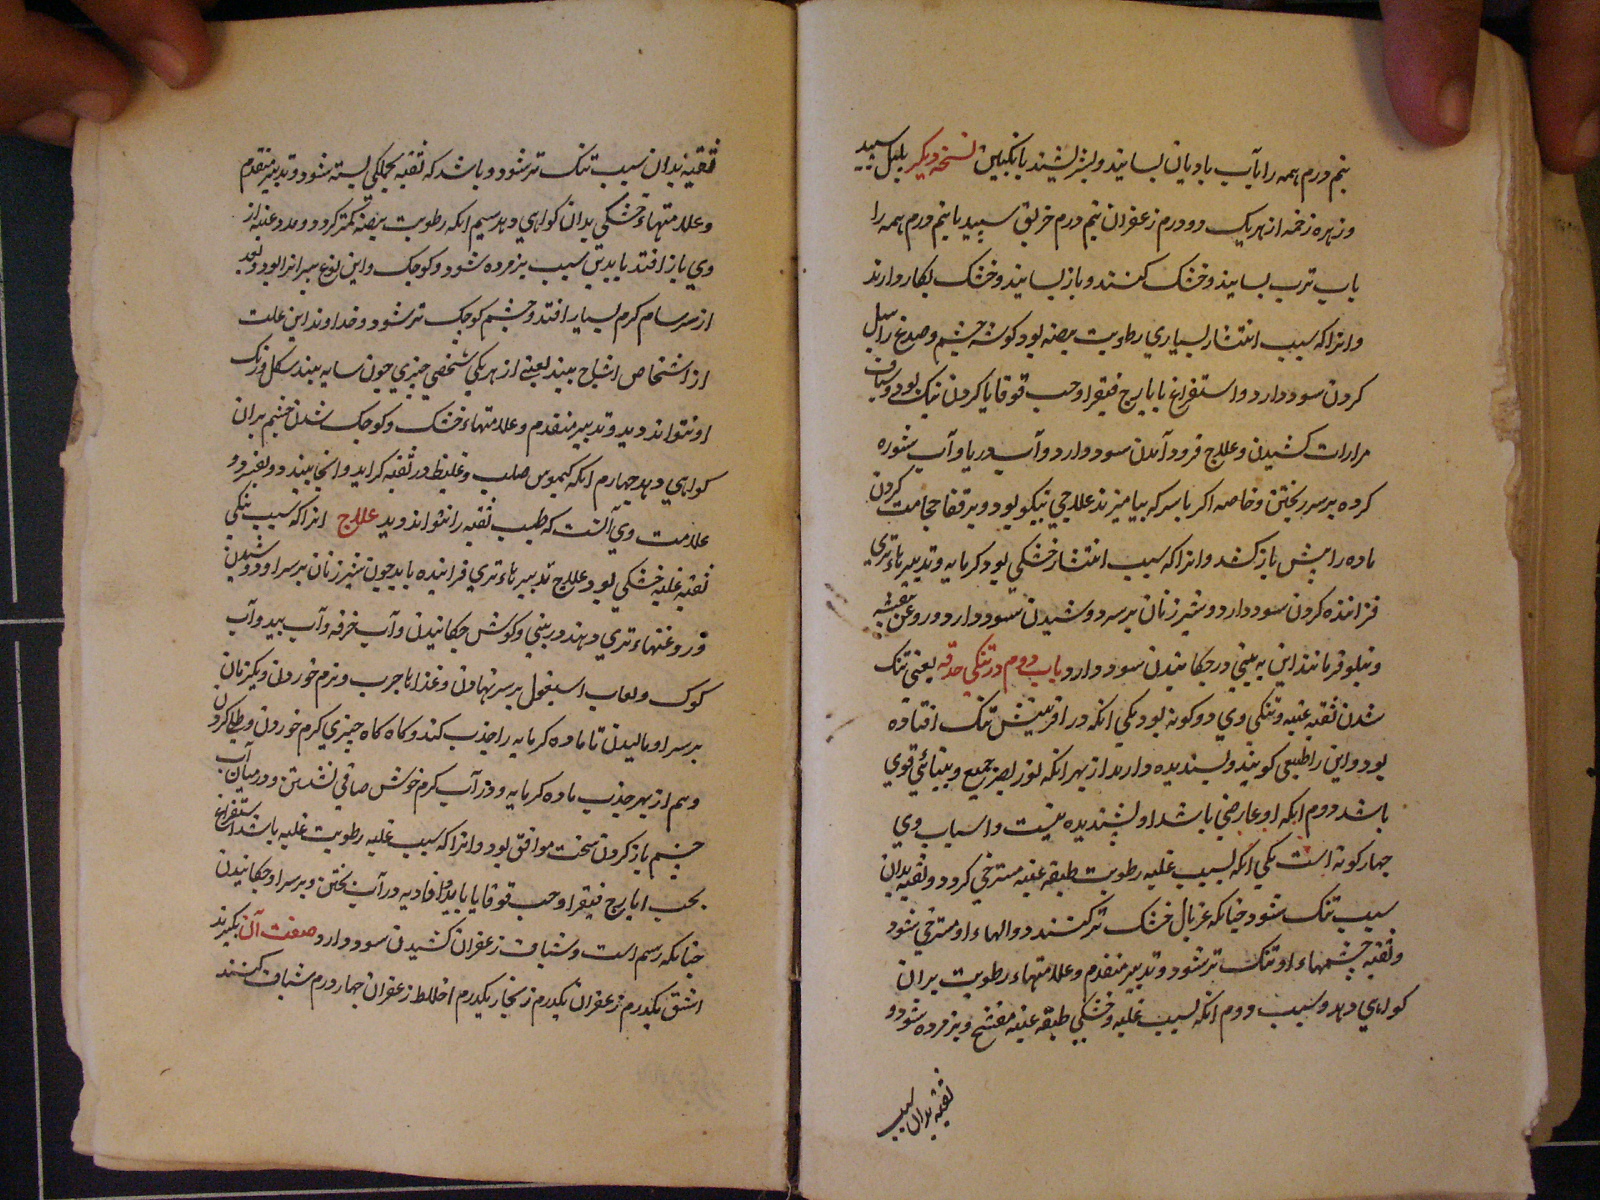 نیم درم همه را بآب بادیان بسایند و بسرشند بانگبین نسخه دیگر پلپل سپید
و زهره زخمه از هر یک دو درم زعفران نیم درم خربق سپید با نیم درم همه را
بآب ترب بسایند و خشک کنند و باز بسایند و خشک بکار دارند
و انرا که سبب انتشار بسیاری رطوبت بیضه بود گوشه چشم و صدغ را سل
کردن سود دارد و استفراغ بایارج فیقرا و حب قوقایا کردن نیک بود و شیاف
مرارات کشیدن و علاج فرود آمدن سود دارد و آب دریا و آب شوره
کرده بر سر ریختن و خاصه اگر با سرکه بیامیزند علاجی نیکو بود و بر قفا حجامت کردن
ماده را پس باز کشد و انرا که سبب انتشار خشکی بود گرمابه و تدبیرهاء تری
فزاینده کردن سود دارد و شیر زنان بر سر دوشیدن سود دارد و روغن بنفشه
و نیلوفر مانند این به بینی در چکانیدن سود دارد باب دوم در تنگی حدقه یعنی تنگ
شدن ثقبه عنبیه و تنگی وی دو گونه بود یکی انکه در آفرینش تنگ افتاده
بود و این را طبیعی گویند و پسندیده دارند از بهر انکه نور بصر جمیع و بینائی قوی
باشد دوم انکه او عارضی باشد او پسندیده نیست و اسباب وی
چهار گونه است یکی انکه بسبب غلبه رطوبت طبقه عنبیه مسترخی گردد و ثقبه بدان
سبب تنگ شود چنانکه غربال خشک تر کنند دوالهاء او مسترخی شود
و ثقبه چشمهاء او تنگ تر شود و تدبیر متقدم و علامتهاء رطوبت بران
گواهی دهد و سبب دوم انکه بسبب غلبه خشکی طبقه عنبیه متشنج و پژمرده شود و
ثقبه بدان سبب
ثقبه بدان سبب تنگ تر شود و باشد که ثقبه بجملگی بسته شود و تدبیر متقدم
و علامتهاء خشکی بدان گواهی دهد سیم انکه رطوبت بیضه کمتر گردد و مدد عنبیه از
وی باز افتد بدین سبب پژمرده شود و کوچک و این نوع پیرانرا بود و بعد
از سرسام گرم بسیار افتد و چشم کوچک تر شود و خداوند این علت
از اشخاص اشباح بیند یعنی از هر یکی شخصی چیزی چون سایه بیند شکل و رنگ
او نتواند دید و تدبیر متقدم و علامتهاء خشک و کوچک شدن چشم بران
گواهی دهد چهارم انکه کیموس صلب و غلیظ در ثقبه گراید و انجا بیندد و بفسرد و
علامت وی آنست که طبیب ثقبه را نتواند دید علاج انرا که سبب تنگی
ثقبه غلبه خشکی بود علاج تدبیرهاء تری فزاینده باید چون شیر زنان بر سر او دوشیدن
و روغنهاء تری دهند در بینی و گوش چکانیدن و آب خرفه و آب بید و آب
کوک و لعاب اسبغول بر سر نهادن و غذاها چرب و نرم خوردن و یکزمان
بر سر او مالیدن تا ماده گرمابه را جذب کند و گاه گاه چیزی گرم خوردن و طلا کردن
و هم از بهر جذب ماده گرمابه و در آب گرم خوش صافی نشستن و در میان آب
چشم باز کردن سخت موافق بود و انرا که سبب غلبه رطوبت غلبه باشد استفراغ
بحب ایارج فیقرا و حب قوقایا باید و افاویه در آب پختن و بر سر او چکانیدن
چنانکه رسم است و شیاف زعفران کشیدن سود دارد صفت آن بگیرند
اشق یکدرم زعفران یکدرم زنجار یکدرم اخلاط زعفران چهار درم شیاف کنند